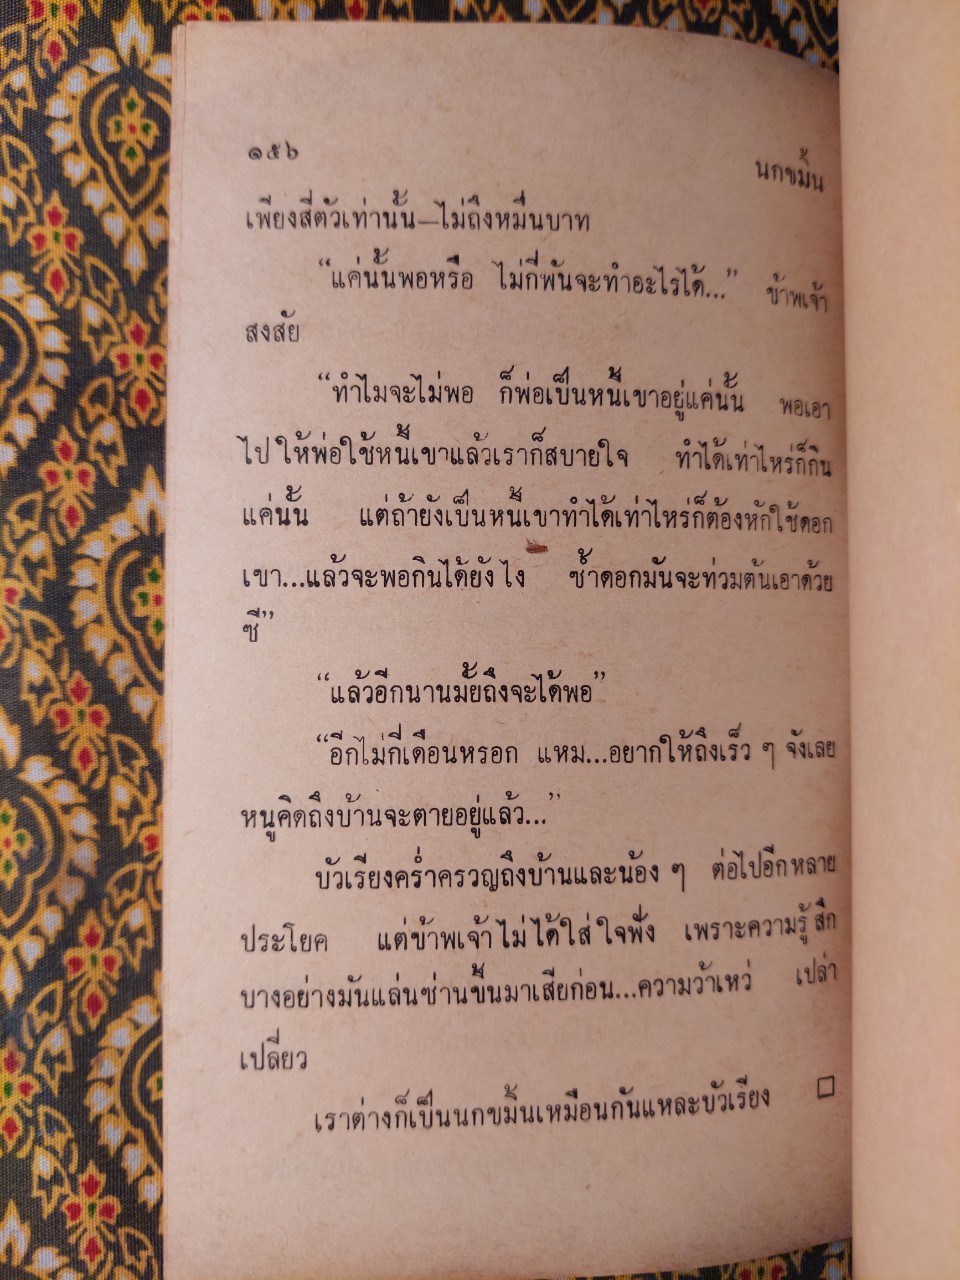 ๑๕๖
นกขมิ้น
เพียงสี่ตัวเท่านั้น—ไม่ถึงหมื่นบาท
“แค่นั้นพอหรือ ไม่กี่พันจะทำอะไรได้...” ข้าพเจ้า
สงสัย
“ทำไมจะไม่พอ ก็พ่อเป็นหนี้เขาอยู่แค่นั้น พอเอา
ไปให้พ่อใช้หนี้เขาแล้วเราก็สบายใจ ทำได้เท่าไหร่ก็กิน
แค่นั้น แต่ถ้ายังเป็นหนี้เขาทำได้เท่าไหร่ก็ต้องหักใช้ดอก
เขา...แล้วจะพอกินได้ยังไง ซ้ำดอกมันจะท่วมต้นเอาด้วย
ซี”
“แล้วอีกนานมั้ยถึงจะได้พอ”
“อีกไม่กี่เดือนหรอก แหม...อยากให้ถึงเร็ว ๆ จังเลย
หนูคิดถึงบ้านจะตายอยู่แล้ว...”
บัวเรียงคร่ำครวญถึงบ้านและน้อง ๆ ต่อไปอีกหลาย
ประโยค แต่ข้าพเจ้าไม่ได้ใส่ใจฟัง เพราะความรู้สึก
บางอย่างมันแล่นซ่านขึ้นมาเสียก่อน...ความว้าเหว่ เปล่า
เปลี่ยว
เราต่างก็เป็นนกขมิ้นเหมือนกันแหละบัวเรียง □